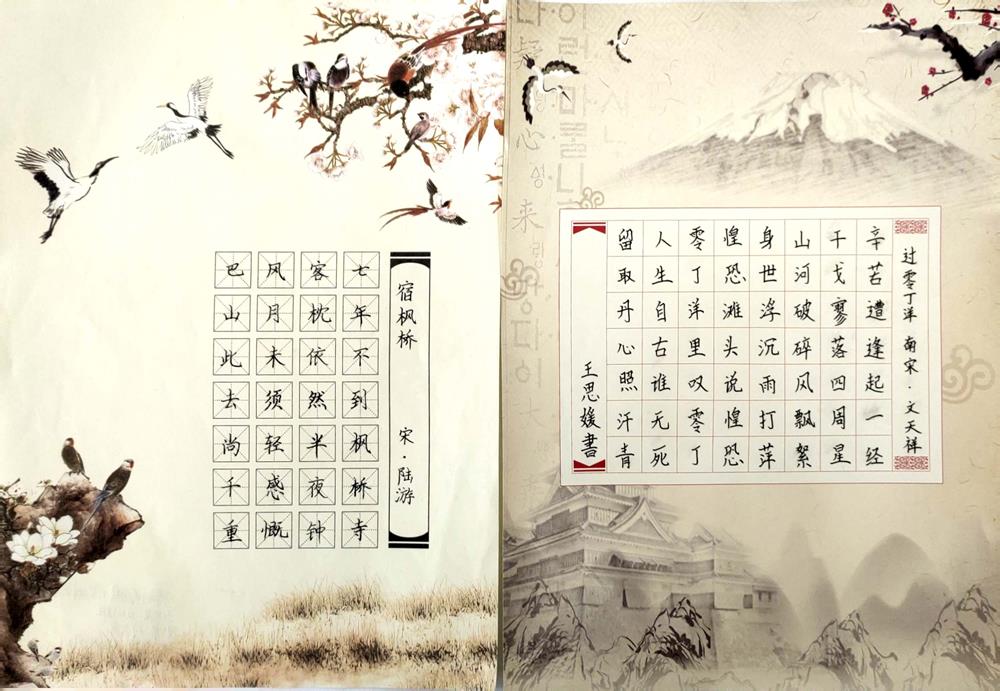 宿枫桥 宋·陆游
七年不到枫桥寺
客枕依然半夜钟
风月未须轻感慨
巴山此去尚千重
过零丁洋 南宋·文天祥
辛苦遭逢起一经
干戈寥落四周星
山河破碎风飘絮
身世浮沉雨打萍
惶恐滩头说惶恐
零丁洋里叹零丁
人生自古谁无死
留取丹心照汗青
王思媛書